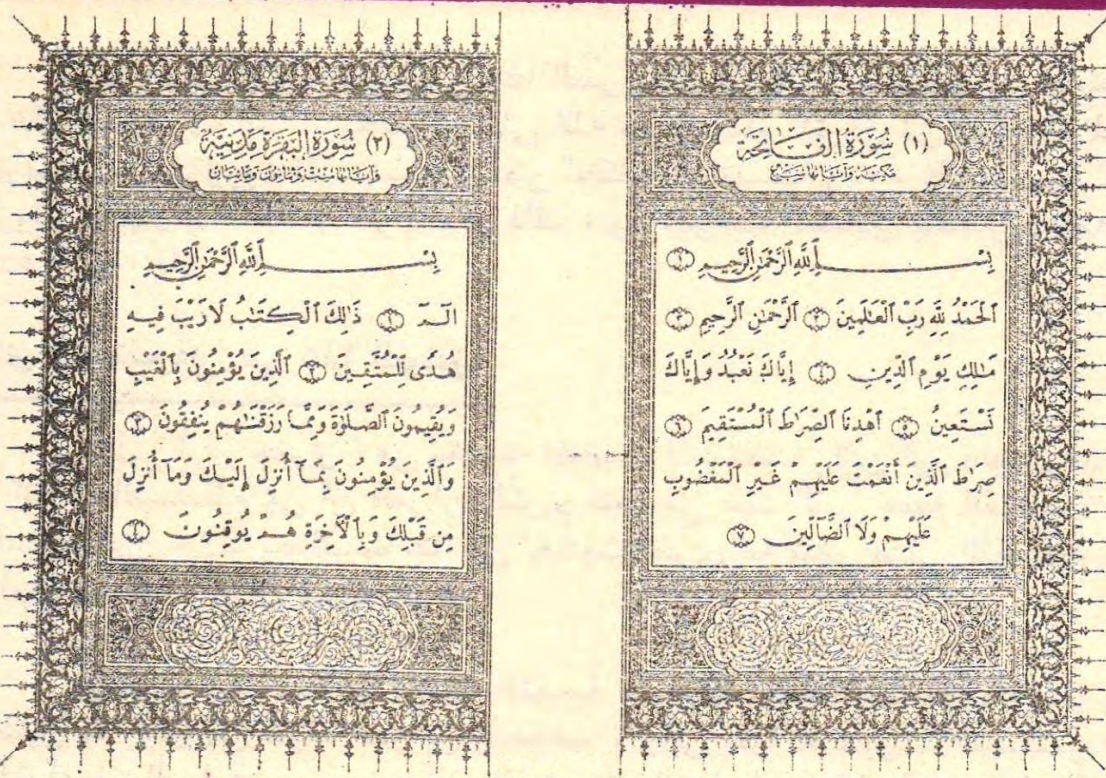 (١) سُورَةُ الفَاتِحَة
مكيّة وآياتها سَبْع
بِسْمِ ٱللَّهِ ٱلرَّحْمَٰنِ ٱلرَّحِيمِ ١
ٱلْحَمْدُ لِلَّهِ رَبِّ ٱلْعَٰلَمِينَ ٢ ٱلرَّحْمَٰنِ ٱلرَّحِيمِ ٣
مَٰلِكِ يَوْمِ ٱلدِّينِ ٤ إِيَّاكَ نَعْبُدُ وَإِيَّاكَ
نَسْتَعِينُ ٥ ٱهْدِنَا ٱلصِّرَٰطَ ٱلْمُسْتَقِيمَ ٦
صِرَٰطَ ٱلَّذِينَ أَنْعَمْتَ عَلَيْهِمْ غَيْرِ ٱلْمَغْضُوبِ
عَلَيْهِمْ وَلَا ٱلضَّآلِّينَ ٧
(٢) سُورَةُ البَقَرَةِ مَدَنِيَّة
وآياتها سِتّ وثمانون ومائتان
بِسْمِ ٱللَّهِ ٱلرَّحْمَٰنِ ٱلرَّحِيمِ
الٓمٓ ١ ذَٰلِكَ ٱلْكِتَٰبُ لَا رَيْبَ فِيهِ
هُدًى لِّلْمُتَّقِينَ ٢ ٱلَّذِينَ يُؤْمِنُونَ بِٱلْغَيْبِ
وَيُقِيمُونَ ٱلصَّلَوٰةَ وَمِمَّا رَزَقْنَٰهُمْ يُنفِقُونَ ٣
وَٱلَّذِينَ يُؤْمِنُونَ بِمَآ أُنزِلَ إِلَيْكَ وَمَآ أُنزِلَ
مِن قَبْلِكَ وَبِٱلْأَخِرَةِ هُمْ يُوقِنُونَ ٤